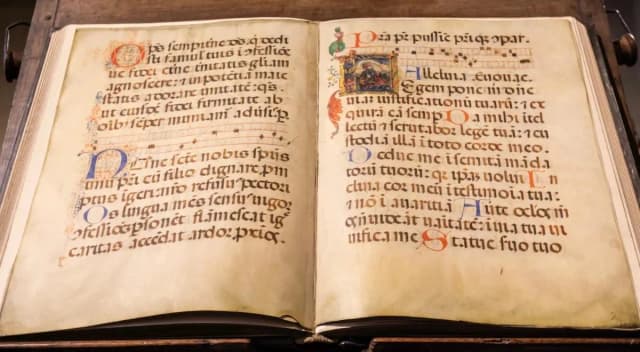 Ops sempitne ds q dedi
sti famul tuis i cfessioe
ue fidei etne tnitatis gliam
agnoscere: et in potentia maie
statis adorare unitate: qs.
ut eiusde fidei firmitate ab
oib semper muniam adusis. p.
Nunc scte nobis spus
unu pri cu filio dignare pm
ptus igeri nro refusus pectori
Os lingua mes sensu uigor
cfessioes psonet flamescat ig
caritas accedat ardor prios.
Pra pe piissie pri q; copar.
Alleluia. Euouae.
Legem pone m dne
uia iustificationu tuaru: et ex
quira ea semp Da mihi itel
lectu et scrutabor lege tua: et cu
stodia illa i toto corde meo.
Deduc me i semita mada
toru tuoru: qr ipas uolui In
clina cor meu i testimoia tua:
et no i auaritia Auerte oclos m
ne uideat uaitate: i uia tua ui
uifica me Statue suo tuo